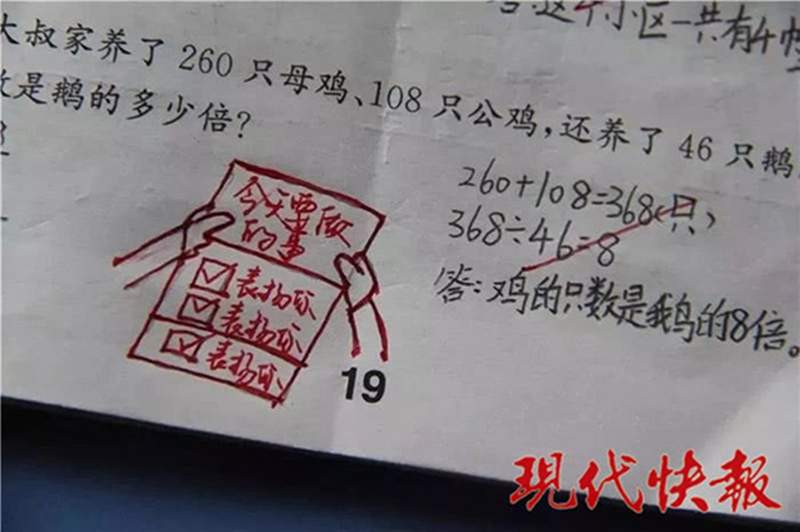 答:这个小区一共有4幢
大叔家养了260只母鸡、108只公鸡,还养了46只鹅
数是鹅的多少倍?
260+108=368(只)
368÷46=8
答:鸡的只数是鹅的8倍。
今天要做
的事
表扬你
表扬你
表扬你
19
現代快報